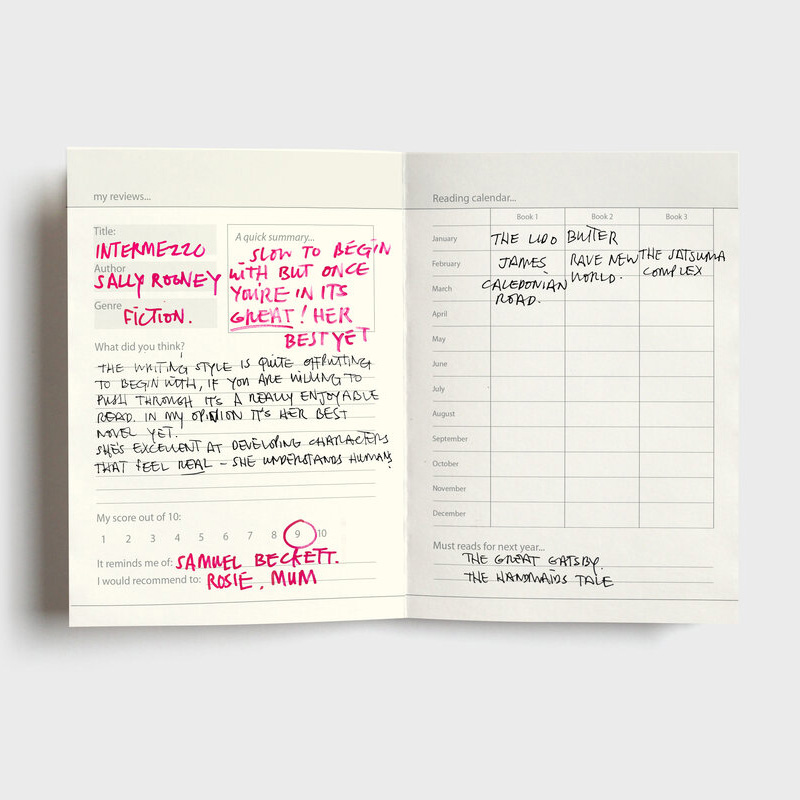 my reviews...
Title:
INTERMEZZO
Author
SALLY ROONEY
Genre
FICTION.
A quick summary...
SLOW TO BEGIN
WITH BUT ONCE
YOU'RE IN ITS
GREAT! HER
BEST YET
What did you think?
THE WRITING STYLE IS QUITE OFFPUTTING
TO BEGIN WITH, IF YOU ARE WILLING TO
PUSH THROUGH IT'S A REALLY ENJOYABLE
READ. IN MY OPINION IT'S HER BEST
NOVEL YET.
SHE'S EXCELLENT AT DEVELOPING CHARACTERS
THAT FEEL REAL - SHE UNDERSTANDS HUMANS
My score out of 10:
1 2 3 4 5 6 7 8 9 10
It reminds me of: SAMUEL BECKETT.
I would recommend to: ROSIE, MUM
Reading calendar...
Book 1 Book 2 Book 3
January THE LIDO BUTTER
February JAMES RAVE NEW WORLD. THE SATSUMA COMPLEX
March CALEDONIAN ROAD.
April
May
June
July
August
September
October
November
December
Must reads for next year...
THE GREAT GATSBY.
THE HANDMAIDS TALE